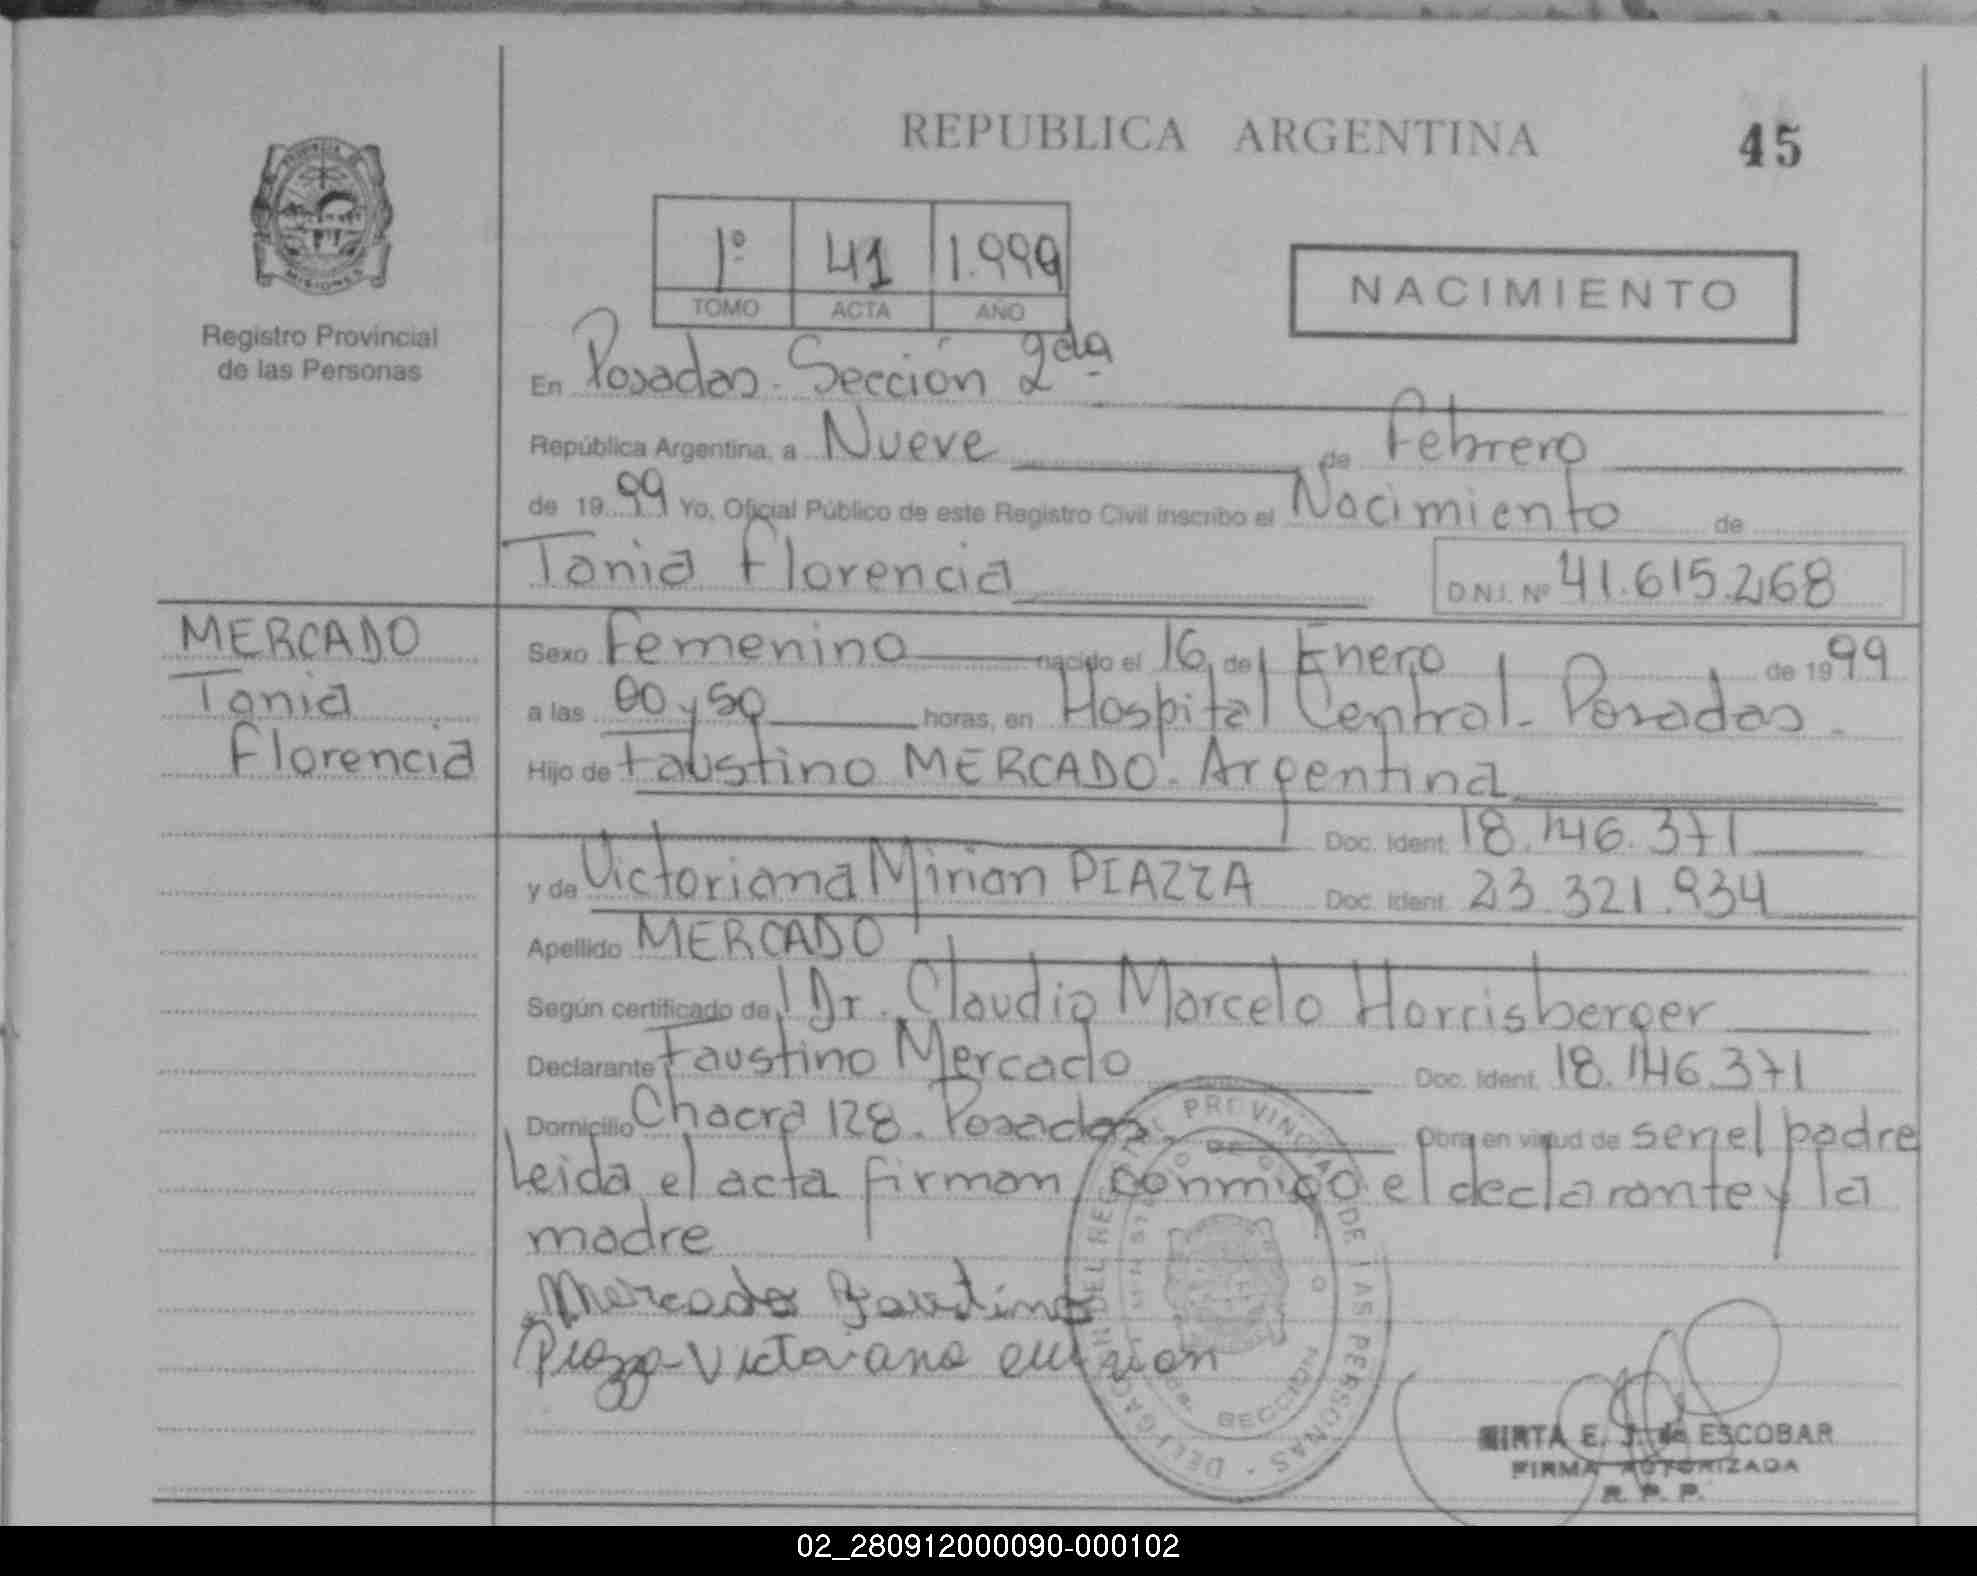 REPUBLICA ARGENTINA
45
PROVINCIA DE MISIONES
Registro Provincial
de las Personas
1º 41 1.999
TOMO ACTA AÑO
NACIMIENTO
En Posadas. Sección 2da
República Argentina, a Nueve de Febrero
de 1999 Yo, Oficial Público de este Registro Civil inscribo el Nacimiento de
Tania Florencia D.N.I. Nº 41.615.268
MERCADO
Tania
Florencia
Sexo Femenino nacido el 16 de Enero de 1999
a las 00 y 50 horas, en Hospital Central. Posadas.
Hijo de Faustino MERCADO. Argentina
Doc. Ident. 18.146.371
y de Victoriana Mirian PIAZZA Doc. Ident. 23.321.934
Apellido MERCADO
Según certificado de Dr. Claudio Marcelo Horrisberger
Declarante Faustino Mercado Doc. Ident. 18.146.371
Domicilio Chacra 128. Posadas. Obra en virtud de ser el padre
Leida el acta firman conmigo el declarante y la
madre
Mercado Faustino
Piazza Victoriana
DELEGACION DEL REGISTRO PROVINCIAL DE LAS PERSONAS
SECCION
MIRTA E. J. de ESCOBAR
FIRMA AUTORIZADA
R. P. P.
02_280912000090-000102